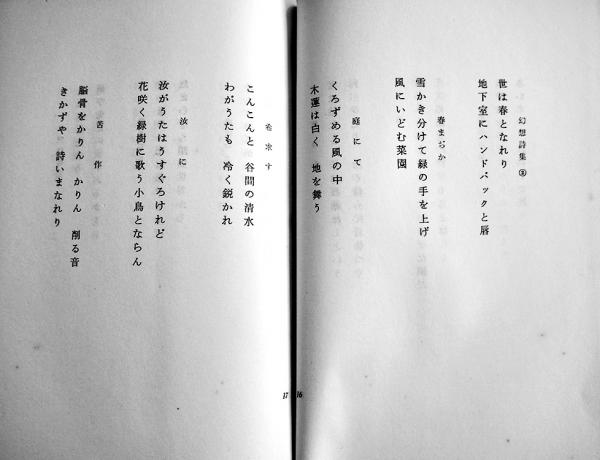 幻想詩集
世は春となれり
地下室にハンドバックと唇
春まぢか
雪かき分けて緑の手を上げ
風にいどむ菜園
庭にて
くろずめる風の中
木蓮は白く 地を舞う
を求す
こんこんと 谷間の清水
わがうたも 冷く鋭かれ
汝に
汝がうたはうすぐろけれど
花咲く緑樹に歌う小鳥とならん
苦作
脳骨をかりん かりん 削る音
きかずや 詩いまなれり
17
16